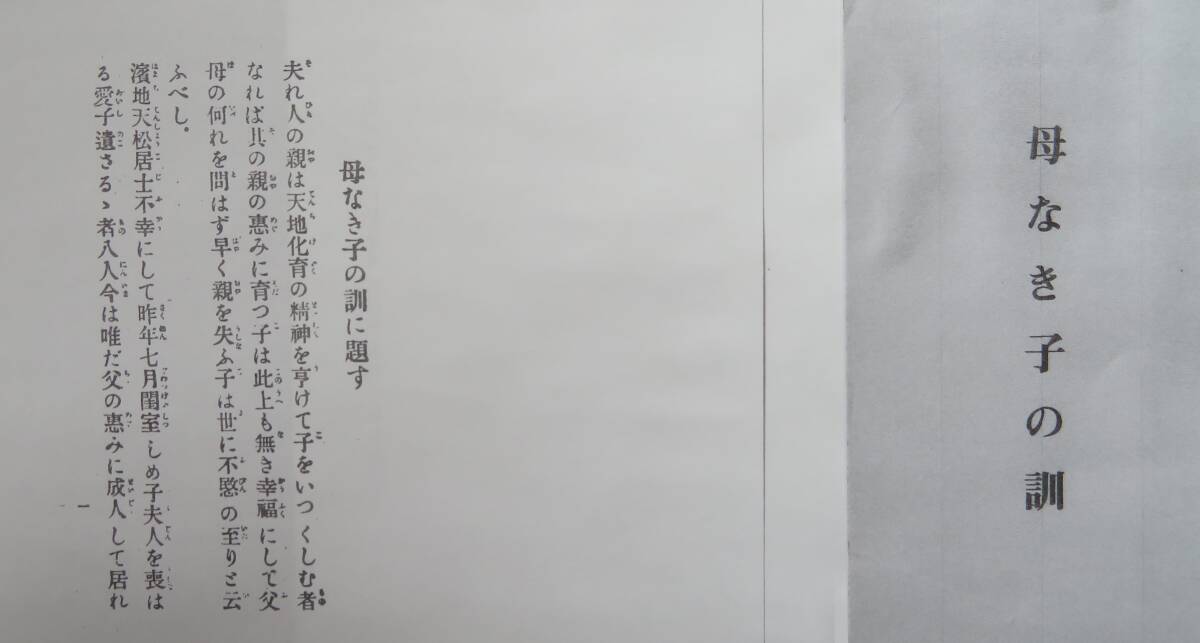 母なき子の訓
母なき子の訓に題す
夫れ人の親は天地化育の精神を亨けて子をいつくしむ者
なれば其の親の惠みに育つ子は此上も無き幸福にして父
母の何れを問はず早く親を失ふ子は世に不愍の至りと云
ふべし。
濱地天松居士不幸にして昨年七月閨室しめ子夫人を喪は
る愛子遺さるゝ者八人今は唯だ父の惠みに成人して居れ
一